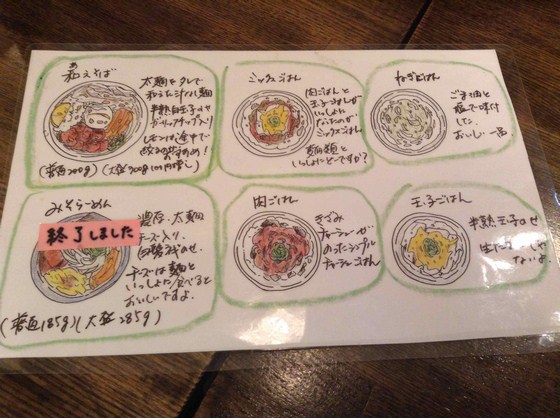 和えそば
太麺をタレで
和えた汁なし麺
半熟玉子のせ
ガーリックチップ入り
(普通200g)(大盛300g 100円増し)
ミックスごはん
肉ごはんと
玉子ごはんが
いっしょに
なったのが
ミックスごはん
麺類と
いっしょにどーですか?
ねぎごはん
ごま油と
塩で味付
した、
おいしい一品
みそらーめん
終了しました
濃厚・太麺
チーズ入り、
チーズは麺と
いっしょに食べると
おいしいですよ。
(普通185g)(大盛285g)
肉ごはん
きざみ
チャーシューが
のったシンプル
チャーシューごはん
玉子ごはん
半熟玉子のせ